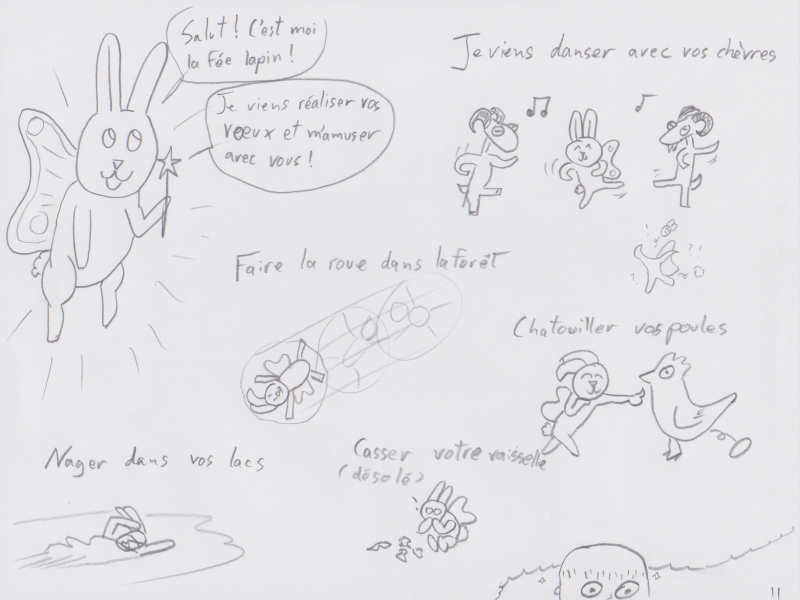 Salut! C'est moi
la Fée lapin!
Je viens réaliser vos
voeux et m'amuser
avec vous!
Je viens danser avec vos chèvres
Faire la roue dans la forêt
Chatouiller vos poules
Nager dans vos lacs
Casser votre vaisselle
(désolé)
!
?!
11